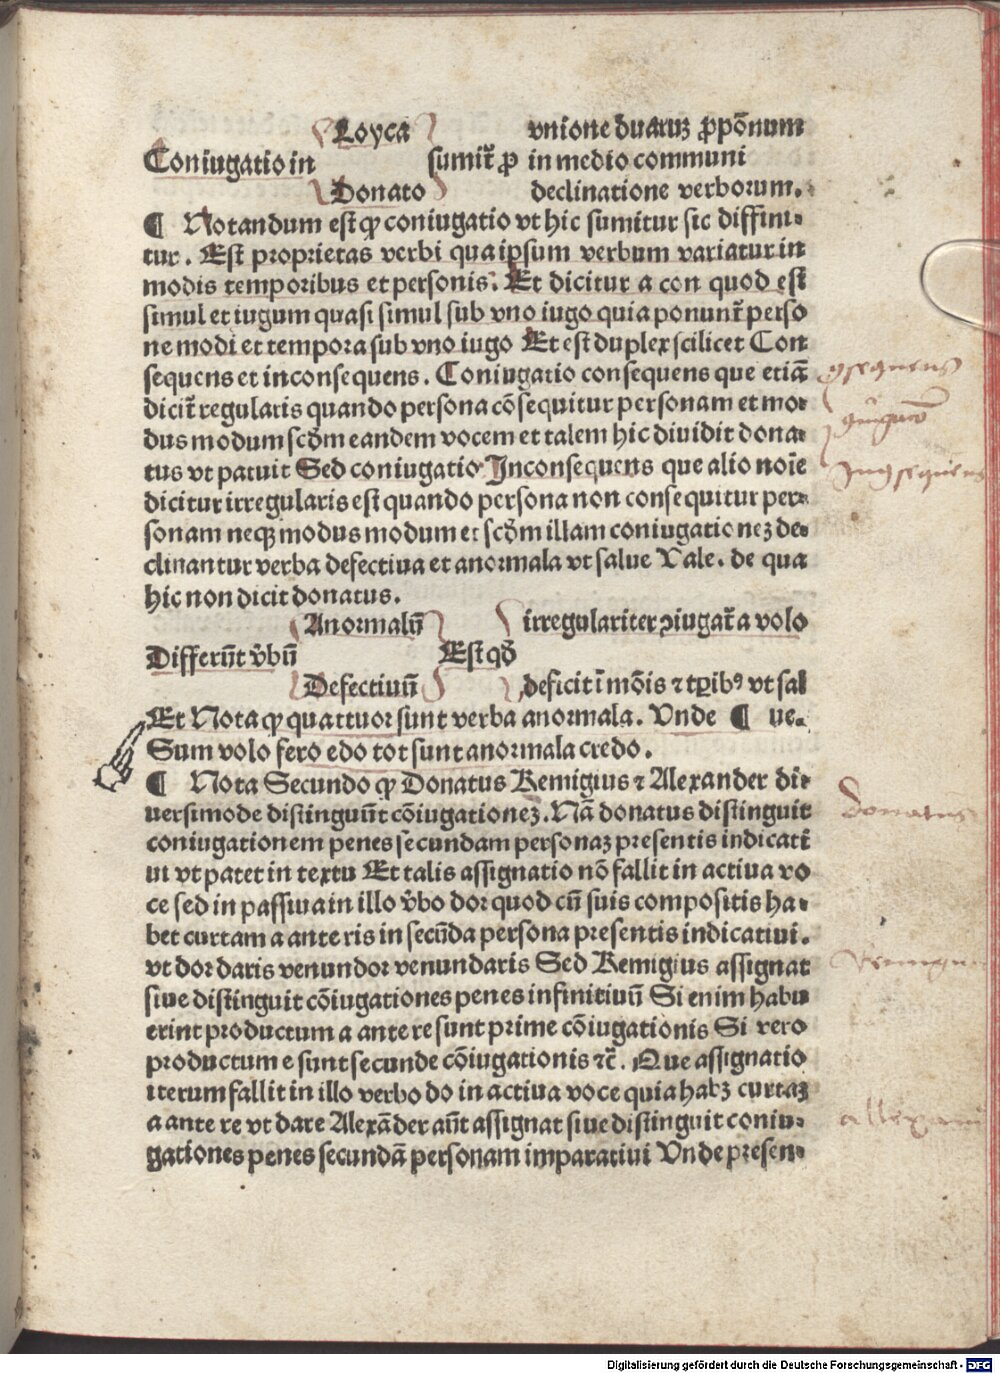 Loyca vnione duaruꝫ ꝓpōnum
Coniugatio in sumit᷑ ꝓ in medio communi
Donato declinatione verborum.
¶ Notandum est ꝙ coniugatio vt hic sumitur sic diffini⸗
tur. Est proprietas verbi qua ipsum verbum variatur in
modis temporibus et personis. Et dicitur a con quod est
simul et iugum quasi simul sub vno iugo quia ponunt᷑ perso
ne modi et tempora sub vno iugo Et est duplex scilicet Con
sequens et inconsequens. Coniugatio consequens que etiā
dicit᷑ regularis quando persona cōsequitur personam et mo⸗
dus modum scḋm eandem vocem et talem hic diuidit dona⸗
tus vt patuit Sed coniugatio Inconsequens que alio noīe
dicitur irregularis est quando persona non consequitur per⸗
sonam neqꝫ modus modum et scḋm illam coniugationeꝫ de⸗
clinantur verba defectiua et anormala vt salue Vale. de qua
hic non dicit donatus.
Anormalū irregulariter ꝯiugat᷑ a volo
Differūt v̄bū Est qḋ
Defectiuū deficit ī mōis ⁊ tꝑibꝰ vt sal
Et Nota ꝙ quattuor sunt verba anormala. Vnde ¶ ue.
Sum volo fero edo tot sunt anormala credo.
¶ Nota Secundo ꝙ Donatus Remigius ⁊ Alexander di⸗
uersimode distinguūt cōiugationeꝫ. Nā donatus distinguit
coniugationem penes secundam personaꝫ presentis indicati
ui vt patet in textu Et talis assignatio nō fallit in actiua vo
ce sed in passiua in illo v̄bo dor quod cū suis compositis ha⸗
bet curtam a ante ris in secūda persona presentis indicatiui.
vt dor daris venundor venundaris Sed Remigius assignat
siue distinguit cōiugationes penes infinitiuū Si enim habu
erint productum a ante re sunt prime cōiugationis Si vero
productum e sunt secunde cōiugationis ⁊c̄. Que assignatio
iterum fallit in illo verbo do in actiua voce quia habꝫ curtaꝫ
a ante re vt dare Alexāder aūt assignat siue distinguit coniu⸗
gationes penes secundā personam imparatiui Vnde presen⸗
donatus
Digitalisierung gefördert durch die Deutsche Forschungsgemeinschaft - DFG